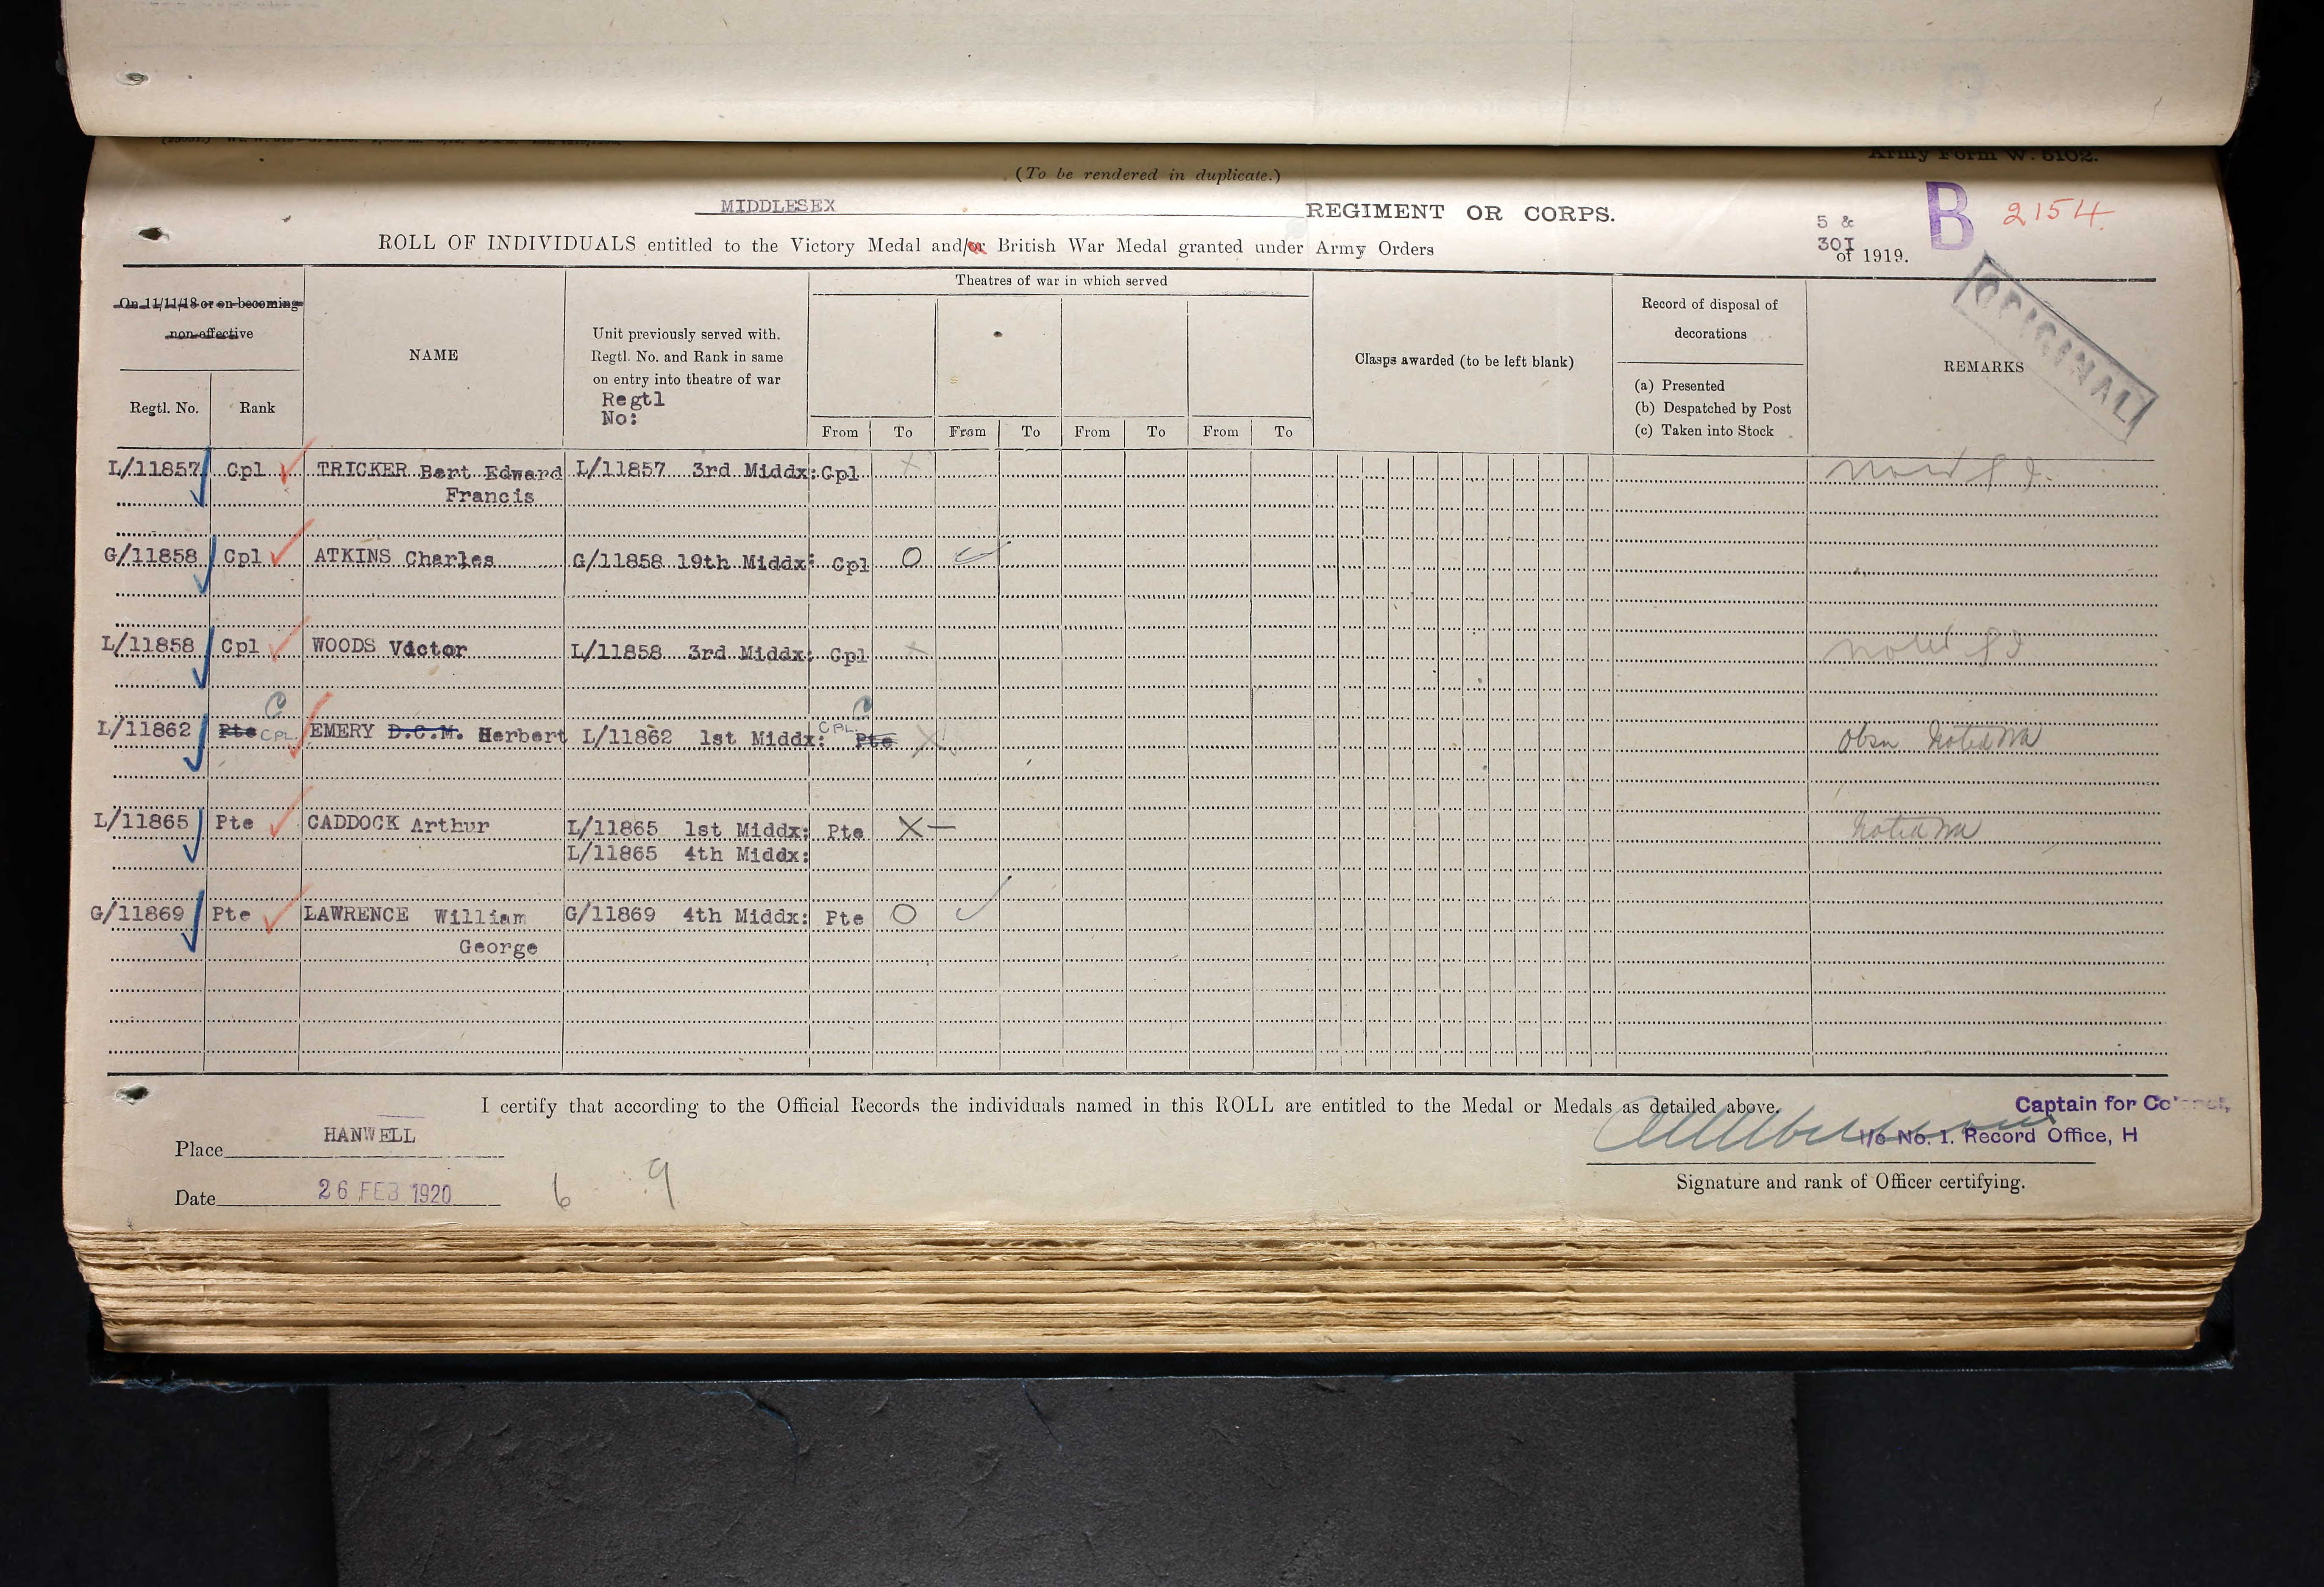 Army Form W. 5102.
(To be rendered in duplicate.)
MIDDLESEX REGIMENT OR CORPS.
B 2154.
5 &
ROLL OF INDIVIDUALS entitled to the Victory Medal and/or British War Medal granted under Army Orders 301 of 1919.
ORIGINAL
On 11/11/18 or on becoming
non-effective
Regtl. No.
Rank
NAME
Unit previously served with.
Regtl. No. and Rank in same
on entry into theatre of war
Regtl
No:
Theatres of war in which served
From To From To From To From To
Clasps awarded (to be left blank)
Record of disposal of
decorations
(a) Presented
(b) Despatched by Post
(c) Taken into Stock
REMARKS
L/11857 Cpl TRICKER Bert Edward L/11857 3rd Middx: Cpl X
Francis
G/11858 Cpl ATKINS Charles G/11858 19th Middx: Cpl O
L/11858 Cpl WOODS Victor L/11858 3rd Middx: Cpl X
C C
L/11862 Pte CPL. EMERY D.C.M. Herbert L/11862 1st Middx: CPL. Pte X Noted
L/11865 Pte CADDOCK Arthur L/11865 1st Middx: Pte X Noted
L/11865 4th Middx:
G/11869 Pte LAWRENCE William G/11869 4th Middx: Pte O
George
I certify that according to the Official Records the individuals named in this ROLL are entitled to the Medal or Medals as detailed above.
Captain for Colonel,
I/c No. 1. Record Office, H
Place HANWELL
Date 26 FEB 1920
6 9
Signature and rank of Officer certifying.